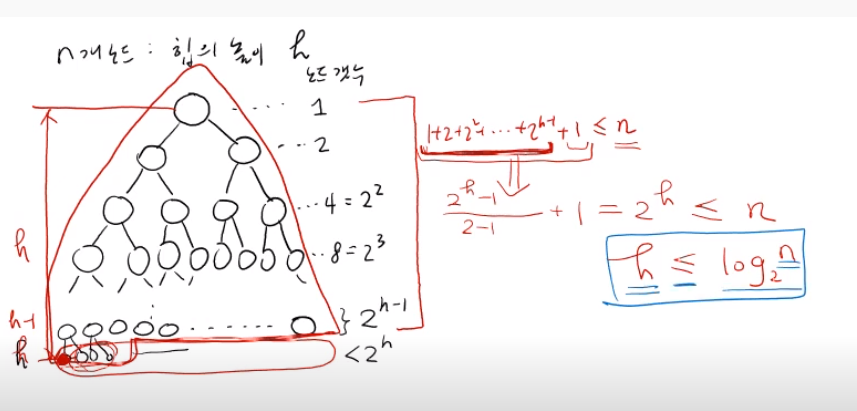 n개 노드 : 힙의 높이 h
노드 갯수
1
2
4 = 2²
8 = 2³
h
h-1
} 2^{h-1}
h
< 2^h
1+2+2²+...+2^{h-1}+1 ≤ n
\frac{2^h-1}{2-1} + 1 = 2^h ≤ n
h ≤ log₂n